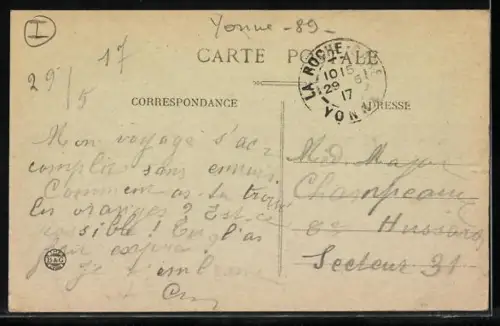 I
Yonne - 89 -
17
29/5
CARTE POSTALE
LA ROCHE
1015
29 5
17
YONNE
CORRESPONDANCE
ADRESSE
Mon voyage s'ac
complit sans ennui.
Comment as-tu trouvé
les oranges ? Est-ce
possible !
Je t'embrasse
Champeaux
Hussards
Secteur 31